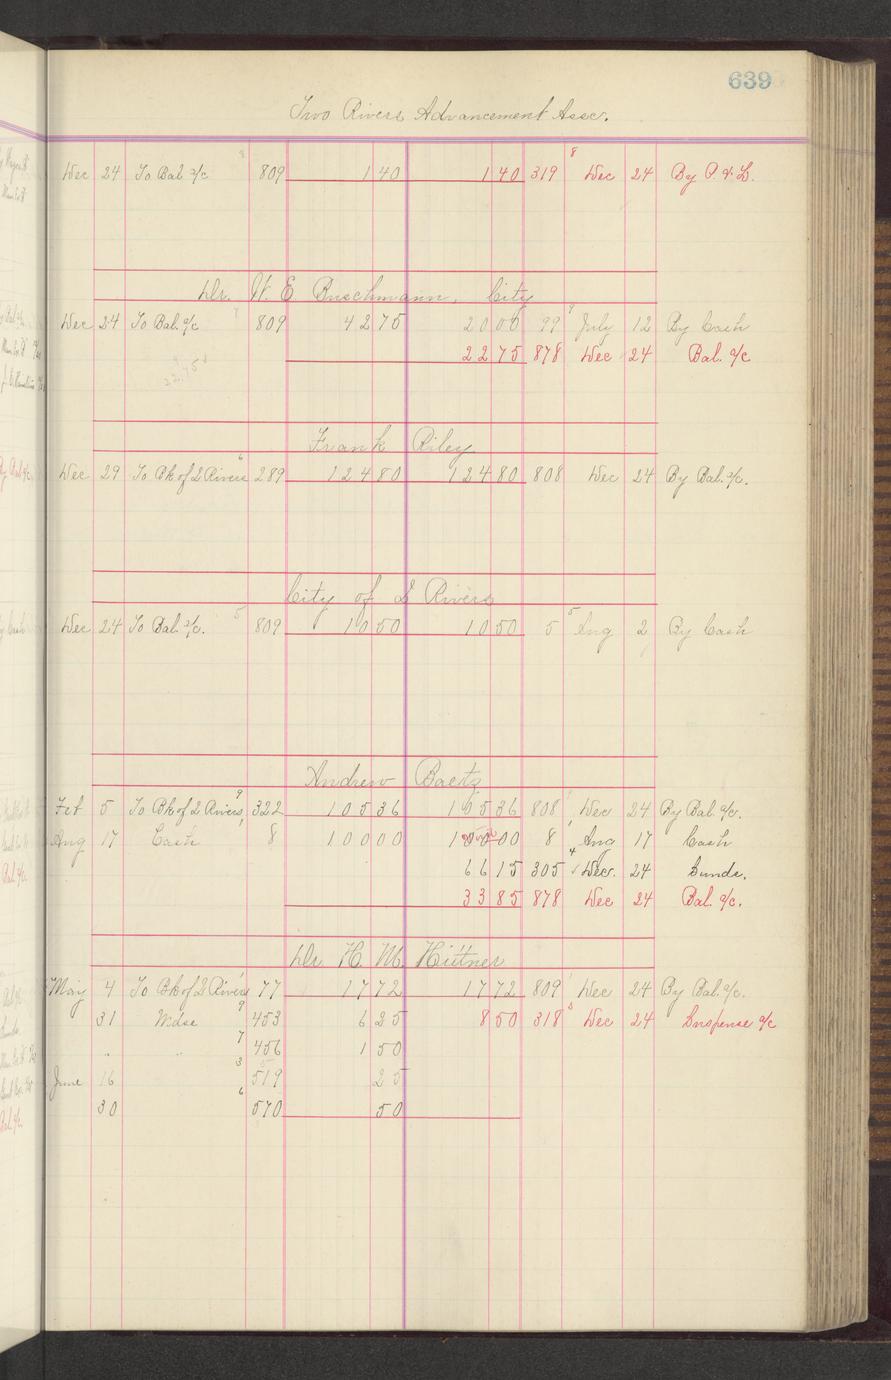 639
Two Rivers Advancement Assc.
Dec 24 To Bal a/c 809 1 40 1 40 319 8 Dec 24 By P. & L.
Dr. W. E Bruechmann, City
Dec 24 To Bal. a/c 809 42 75 20 00 99 9 July 12 By Cash
22 75 878 Dec 24 Bal. a/c
Frank Riley
Dec 29 To Bk of 2 Rivers 6 289 124 80 124 80 808 Dec 24 By Bal. a/c.
City of 2 Rivers
Dec 24 To Bal. a/c. 5 809 10 50 10 50 5 5 Aug 2 By Cash
Andrew Baetz
Feb 5 To Bk of 2 Rivers, 9 322 105 36 105 36 808 Dec 24 By Bal. a/c.
Aug 17 Cash 8 100 00 100 00 8 Aug 17 Cash
66 15 305 4 Dec. 24 Sunds.
33 85 878 Dec 24 Bal. a/c.
Dr H. M. Hüttner
May 4 To Bk of 2 Rivers 77 17 72 17 72 809 Dec 24 By Bal. a/c.
31 Mdse 9 453 6 25 8 50 318 8 Dec 24 Suspense a/c
" " 7 456 1 50
June 16 3 519 25
30 6 570 50